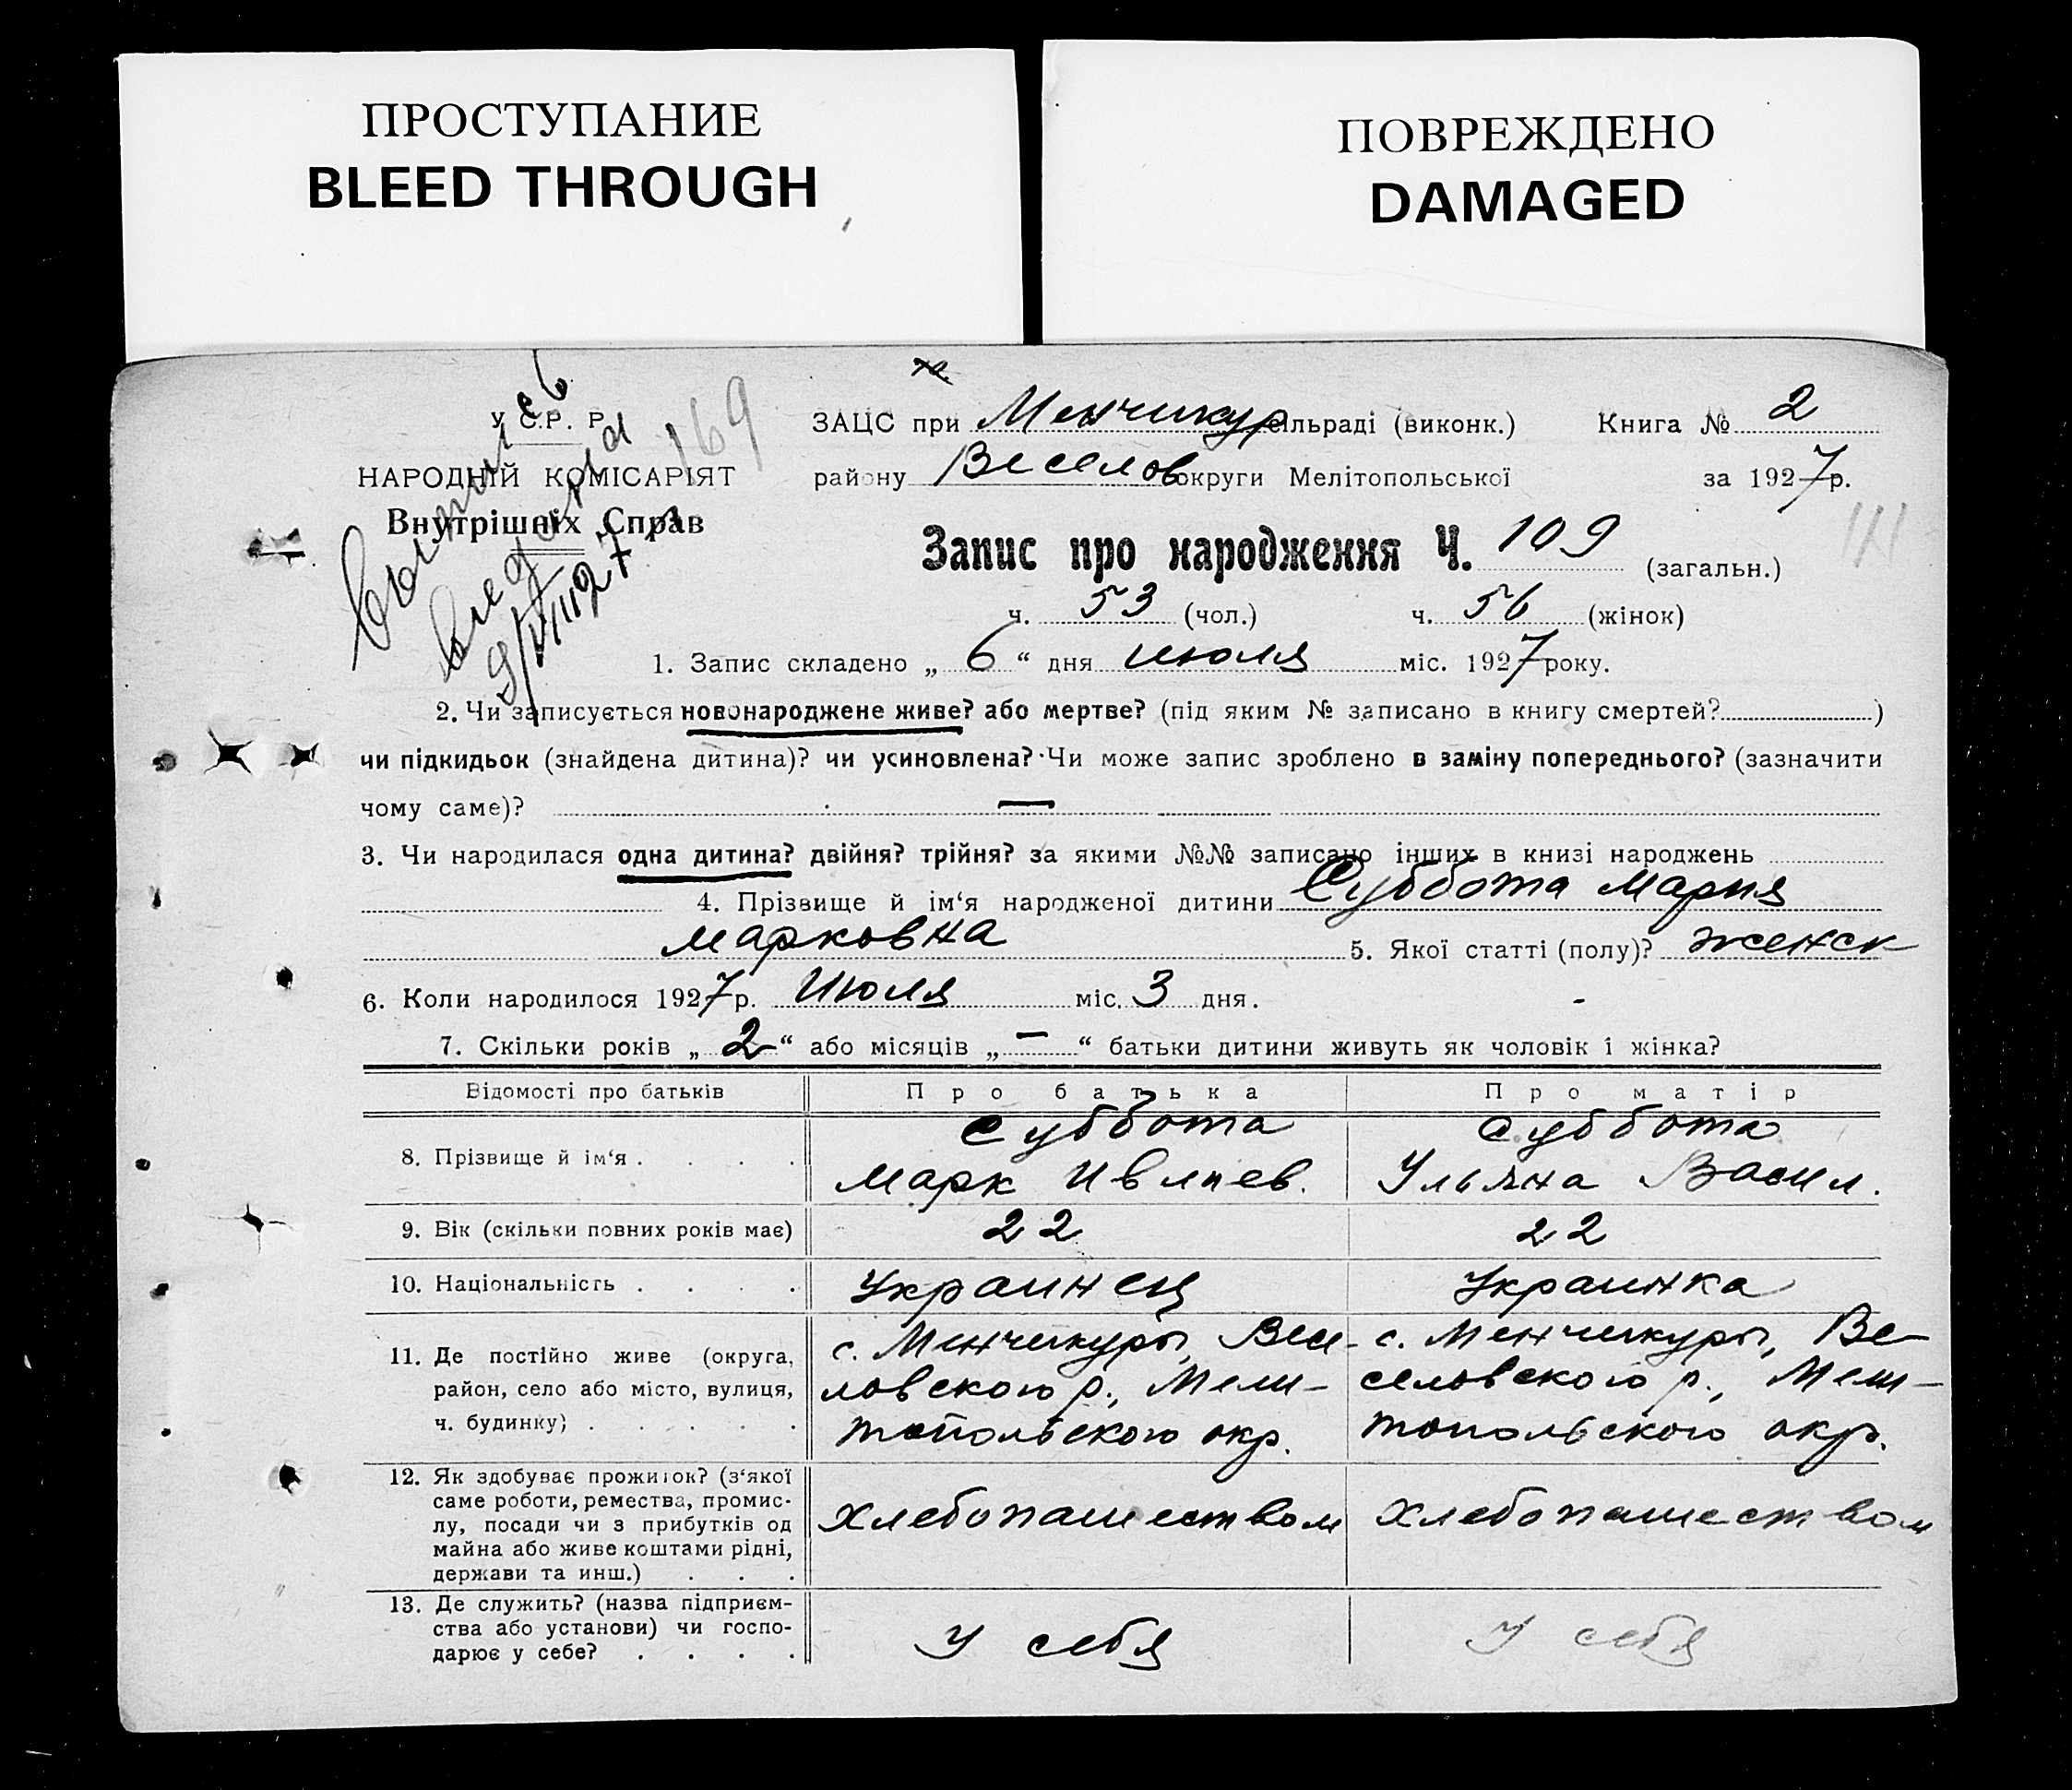 ПРОСТУПАНИЕ
BLEED THROUGH
ПОВРЕЖДЕНО
DAMAGED
У С.Р. Р.
НАРОДНІЙ КОМІСАРІЯТ
Внутрішніх Справ
169
ЗАЦС при Менчикур сільраді (виконк.) Книга № 2
району Веселов округи Мелітопольської за 1927 р.
Запис про народження Ч. 109 (загальн.)
ч. 53 (чол.) ч. 56 (жінок)
1. Запис складено „ 6 “ дня июля міс. 1927 року.
2. Чи записується новонароджене живе? або мертве? (під яким № записано в книгу смертей?)
чи підкидьок (знайдена дитина)? чи усиновлена? Чи може запис зроблено в заміну попереднього? (зазначити
чому саме)? —
3. Чи народилася одна дитина? двійня? трійня? за якими №№ записано інших в книзі народжень
4. Прізвище й ім‘я народженої дитини Суббота Мария
Марковна 5. Якої статті (полу)? женск
6. Коли народилося 1927 р. Июля міс. 3 дня.
7. Скільки років „ 2 “ або місяців „ — “ батьки дитини живуть як чоловік і жінка?
Відомості про батьків Про батька Про матір
8. Прізвище й ім‘я . . . . Суббота Суббота
Марк Ивлиев. Ульяна Васил.
9. Вік (скільки повних років має) 22 22
10. Національність . . . . Украинец Украинка
11. Де постійно живе (округа, с. Менчикуры, Весе- с. Менчикуры, Ве-
район, село або місто, вулиця, ловского р., Мели- селовского р., Мели-
ч. будинку) . . . . . топольского окр. топольского окр.
12. Як здобуває прожиток? (з‘якої
саме роботи, ремества, промис-
лу, посади чи з прибутків од Хлебопашеством Хлебопашеством
майна або живе коштами рідні,
держави та инш.) . . .
13. Де служить? (назва підприєм-
ства або установи) чи госпо- У себя У себя
дарює у себе? . . . .